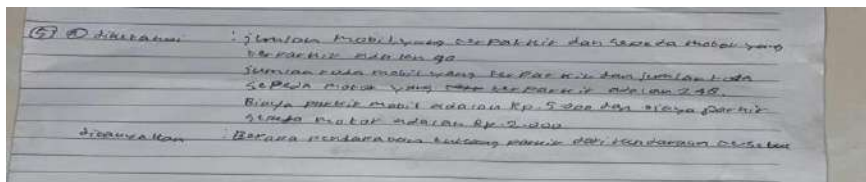 (5) a diketahui : jumlah mobil yang terparkir dan sepeda motor yang
terparkir adalah 90
jumlah roda mobil yang terparkir dan jumlah roda
sepeda motor yang terparkir adalah 248.
Biaya parkir mobil adalah Rp. 5.000 dan biaya parkir
sepeda motor adalah Rp. 2.000
ditanyakan : Berapa pendapatan tukang parkir dari kendaraan tersebut